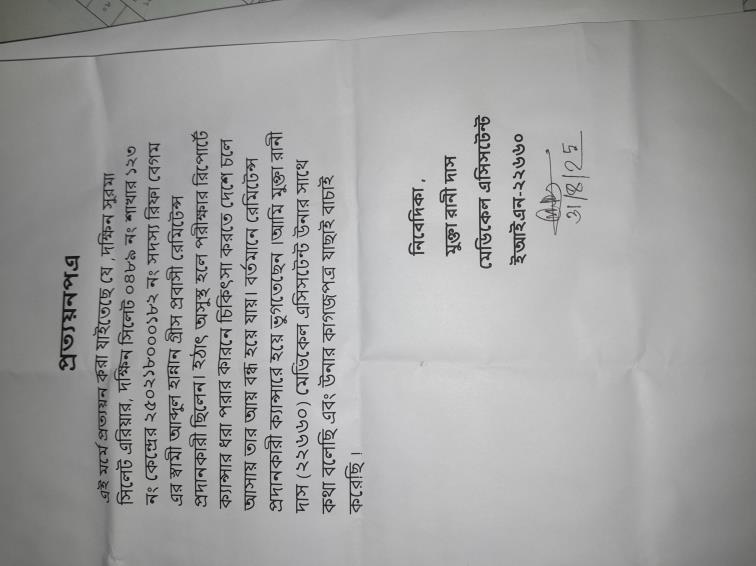 প্রত্যয়নপত্র
এই মর্মে প্রত্যয়ন করা যাইতেছে যে , দক্ষিন সুরমা
সিলেট এরিয়ার, দক্ষিন সিলেট ০৪৮৯ নং শাখার ১২৩
নং কেন্দ্রের ২৫০২১৮০০০১৮২ নং সদস্য রিফা বেগম
এর স্বামী আব্দুল হান্নান গ্রীস প্রবাসী রেমিটেন্স
প্রদানকারী ছিলেন। হঠাৎ অসুস্থ হলে পরীক্ষার রিপোর্টে
ক্যান্সার ধরা পরার কারনে চিকিৎসা করতে দেশে চলে
আসায় তার আয় বন্ধ হয়ে যায়। বর্তমানে রেমিটেন্স
প্রদানকারী ক্যান্সারে হয়ে ভুগতেছেন ।আমি মুক্তা রানী
দাস (২২৬৬০) মেডিকেল এসিসটেন্ট উনার সাথে
কথা বলেছি এবং উনার কাগজপত্র যাছাই বাচাই
করেছি ।
নিবেদিকা ,
মুক্তা রানী দাস
মেডিকেল এসিসটেন্ট
ইআইএন-২২৬৬০
31/8/25